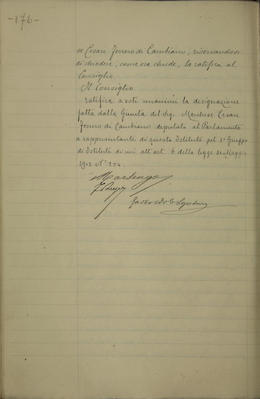 -176-
se Cesare Ferrero di Cambiano, riservandosi
di chiedere, come ora chiede, la ratifica al
Consiglio.
Il Consiglio
ratifica a voti unanimi la designazione
fatta dalla Giunta del Sig. Marchese Cesare
Ferrero di Cambiano deputato al Parlamento
a rappresentante di questo Istituto pel 2° Gruppo
di Istituti di cui all'art. 6 della legge
1912 N°